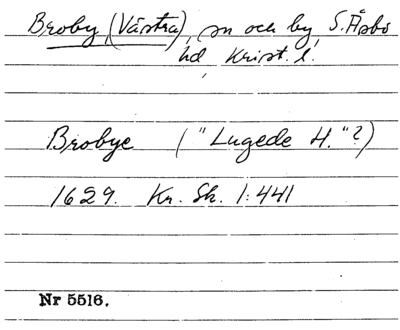 Broby, (Västra), sn och by, S. Åsbo
hd Krist. l.
Brobye ("Lugede H."?)
1629. Kr. Sk. 1:441
Nr 5516.